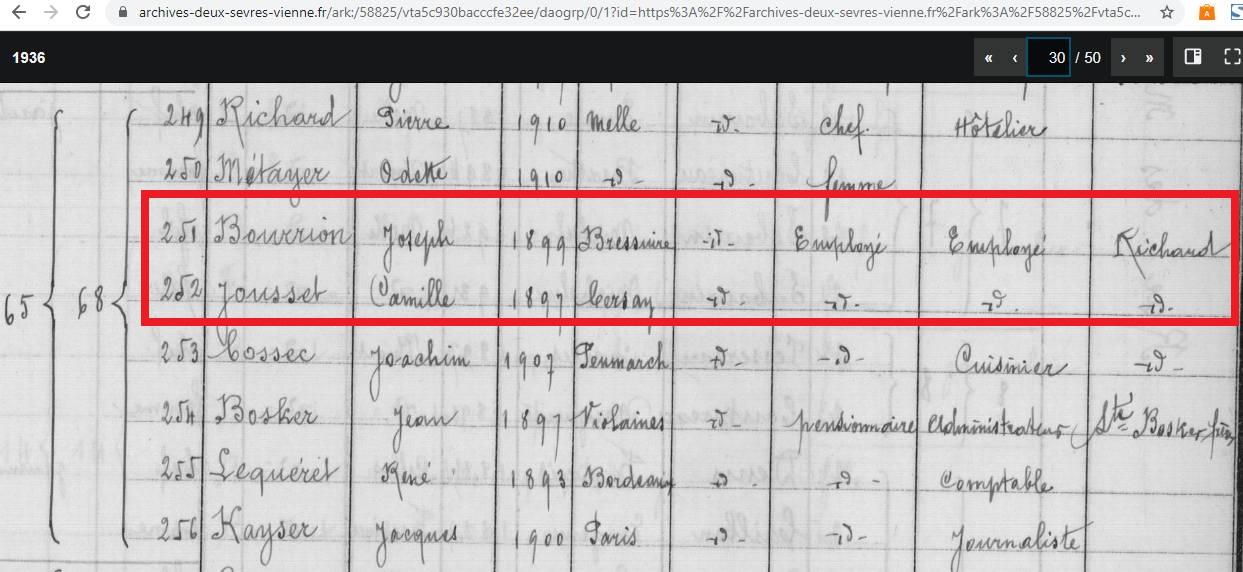 archives-deux-sevres-vienne.fr/ark:/58825/vta5c930bacccfe32ee/daogrp/0/1?id=https%3A%2F%2Farchives-deux-sevres-vienne.fr%2Fark%3A%2F58825%2Fvta5c...
1936 « ‹ 30 / 50 › »
249 Richard Pierre 1910 Melle -d°- chef. Hôtelier
250 Métayer Odette 1910 -d°- -d°- femme
251 Bourrion Joseph 1899 Bressuire -d°- Employé Employé Richard
65 68 252 Jousset Camille 1897 Cersay -d°- -d°- -d°- -d°-
253 Cossec Joachim 1907 Penmarch -d°- -d°- Cuisinier -d°-
254 Bosker Jean 1897 Violaines -d°- pensionnaire Administrateur Sté Bosker
255 Lequéret René 1893 Bordeaux -d°- -d°- Comptable
256 Kayser Jacques 1900 Paris -d°- -d°- Journaliste